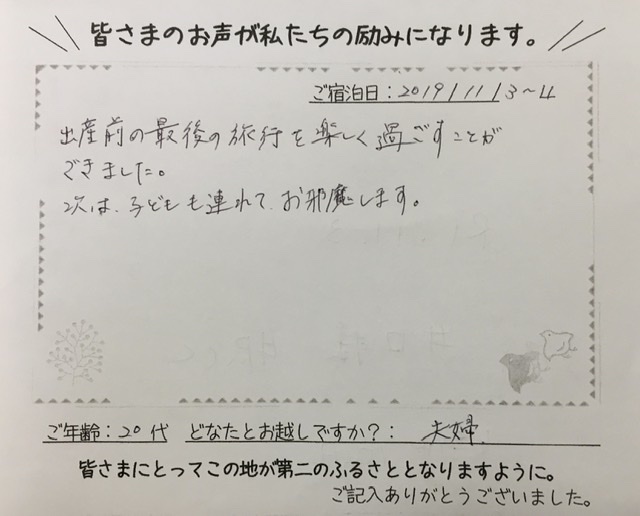 皆さまのお声が私たちの励みになります。
ご宿泊日:2019/11/3～4
出産前の最後の旅行を楽しく過ごすことが
できました。
次は、子どもも連れて、お邪魔します。
ご年齢:20代 どなたとお越しですか?: 夫婦
皆さまにとってこの地が第二のふるさととなりますように。
ご記入ありがとうございました。